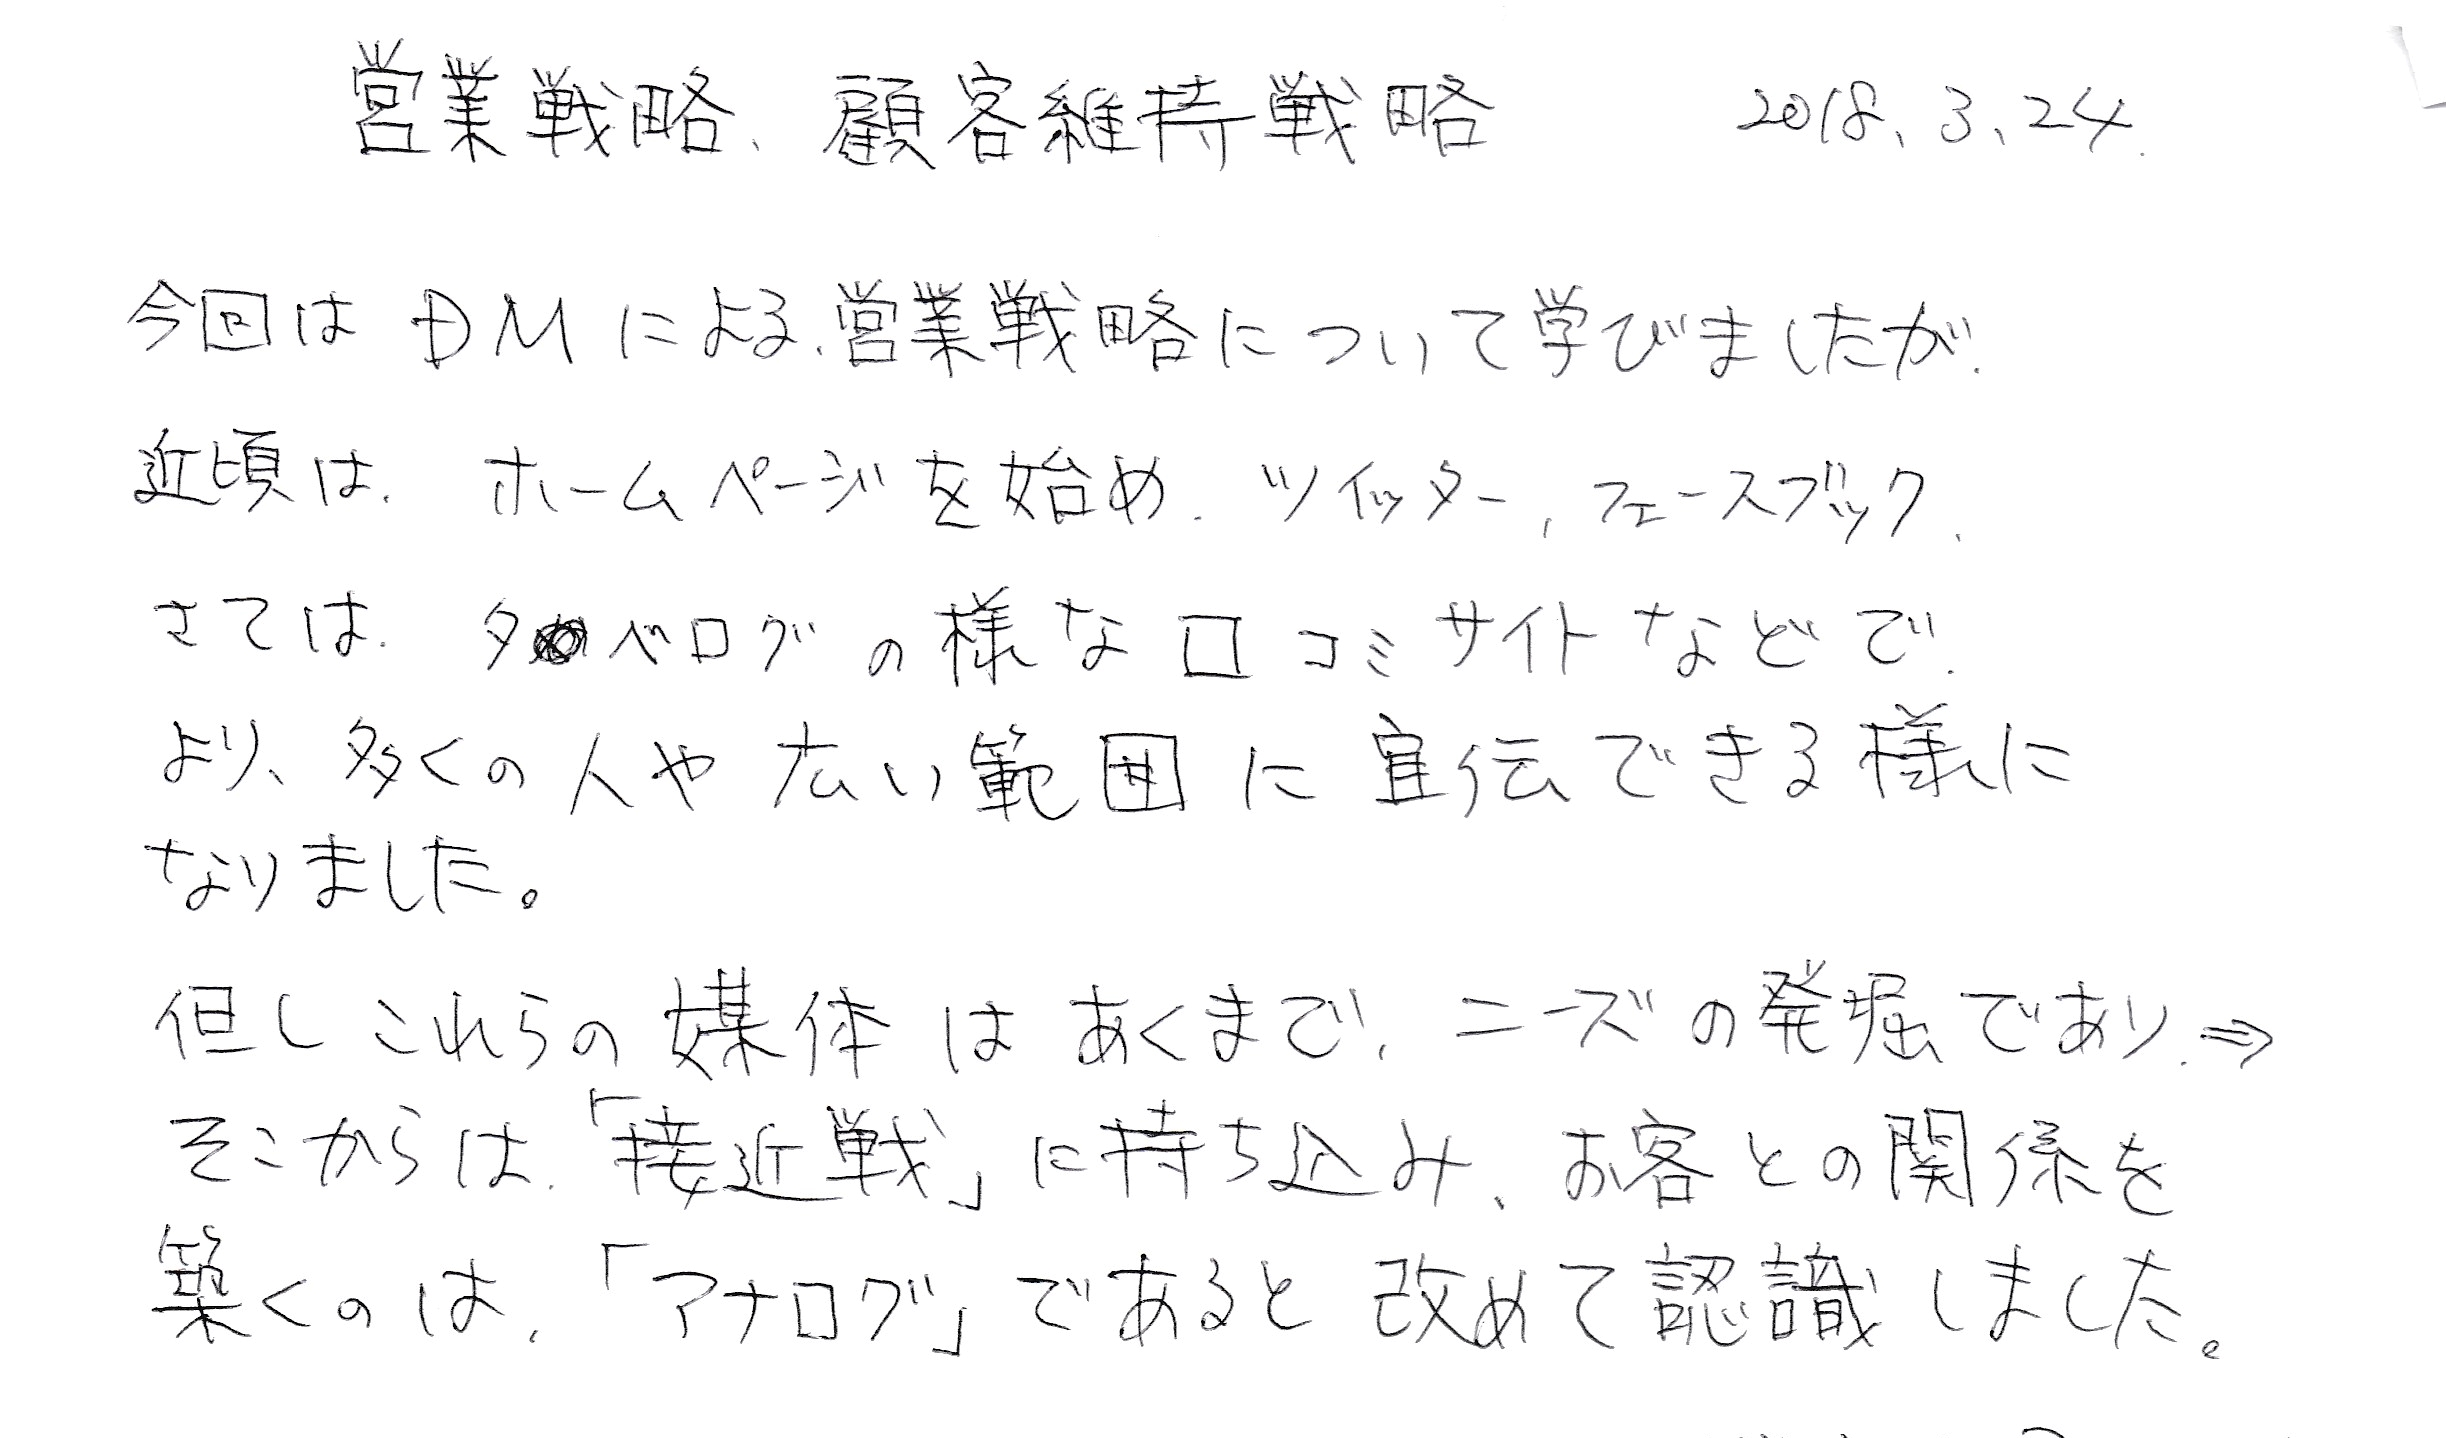 営業戦略、顧客維持戦略 2018.3.24.
今回はDMによる、営業戦略について学びましたが、
近頃は、ホームページを始め、ツイッター、フェースブック、
さては、タベログの様な口コミサイトなどで、
より、多くの人や広い範囲に宣伝できる様に
なりました。
但しこれらの媒体はあくまで、ニーズの発掘であり、⇒
そこからは、「接近戦」に持ち込み、お客との関係を
築くのは、「アナログ」であると改めて認識しました。